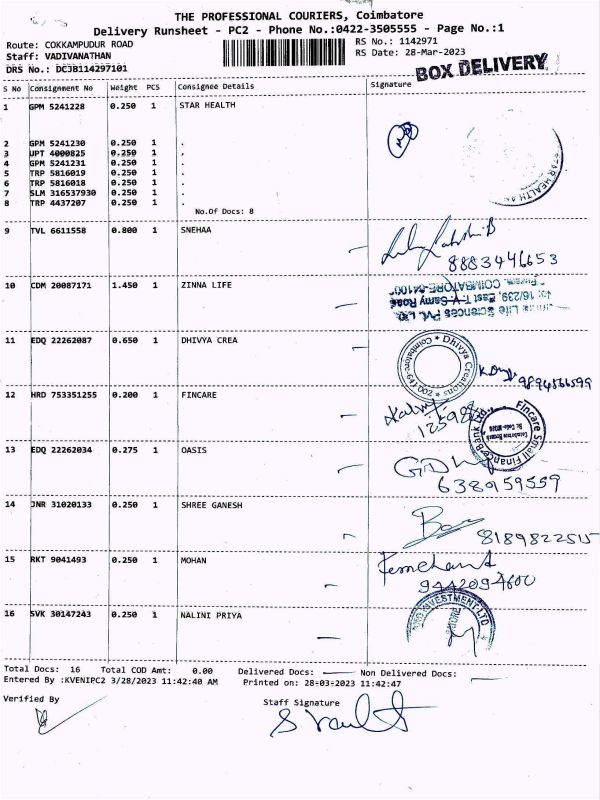 THE PROFESSIONAL COURIERS, Coimbatore
Delivery Runsheet - PC2 - Phone No.:0422-3505555 - Page No.:1
Route: COKKAMPUDUR ROAD RS No.: 1142971
Staff: VADIVANATHAN RS Date: 28-Mar-2023
DRS No.: DC3B114297101 BOX DELIVERY
S No Consignment No Weight PCS Consignee Details Signature
1 GPM 5241228 0.250 1 STAR HEALTH
2 GPM 5241230 0.250 1 .
3 UPT 4000825 0.250 1 .
4 GPM 5241231 0.250 1 .
5 TRP 5816019 0.250 1 .
6 TRP 5816018 0.250 1 .
7 SLM 316537930 0.250 1 .
8 TRP 4437207 0.250 1 .
No.Of Docs: 8
STAR HEALTH
9 TVL 6611558 0.800 1 SNEHAA
8883446653
10 CDM 20087171 1.450 1 ZINNA LIFE
Life Sciences Pvt. Ltd.
16/239, East T.V. Samy Road
COIMBATORE
11 EDQ 22262087 0.650 1 DHIVYA CREA
Dhivya Creations
Coimbatore-641 002
9894566599
12 HRD 753351255 0.200 1 FINCARE
Fincare Small Finance Bank Ltd.
13 EDQ 22262034 0.275 1 OASIS
638959559
14 JNR 31020133 0.250 1 SHREE GANESH
8189822515
15 RKT 9041493 0.250 1 MOHAN
9442094600
16 SVK 30147243 0.250 1 NALINI PRIYA
INVESTMENT LTD
Total Docs: 16 Total COD Amt: 0.00 Delivered Docs: Non Delivered Docs:
Entered By :KVENIPC2 3/28/2023 11:42:40 AM Printed on: 28-03-2023 11:42:47
Verified By Staff Signature